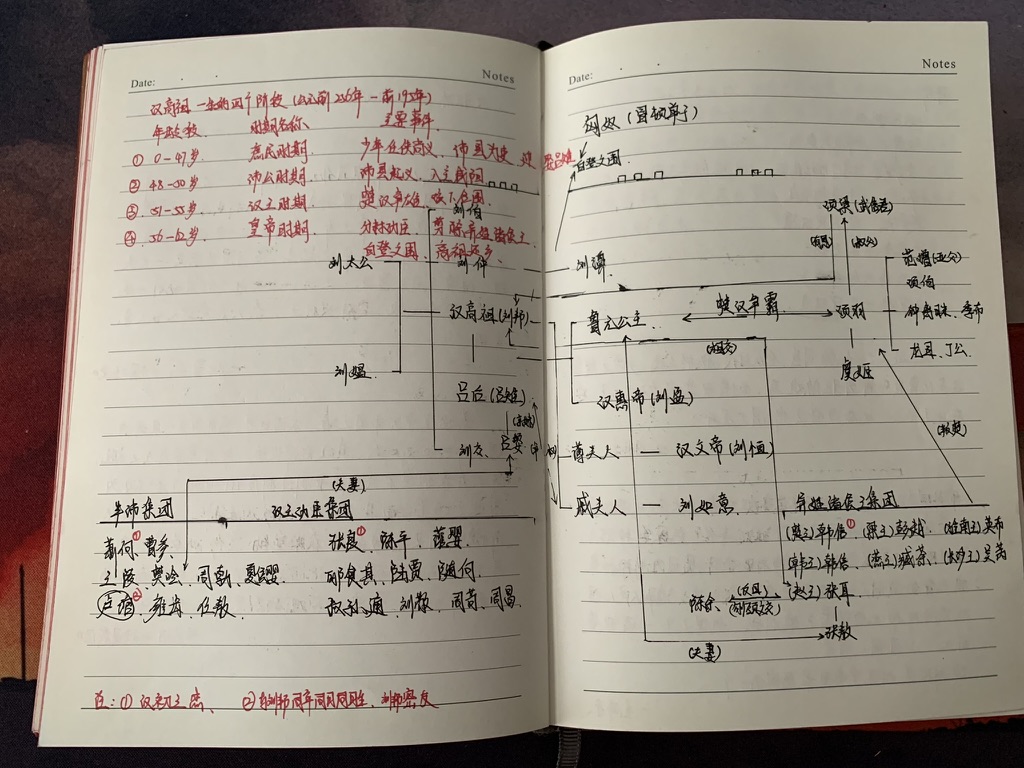 Date:
Notes
汉高祖一生的四个阶段（公元前256年-前195年）
年龄段 时期名称 主要事件
① 0-47岁 庶民时期 少年任侠尚义、沛县为吏
② 48-50岁 沛公时期 沛县起义、入主咸阳
③ 51-55岁 汉王时期 楚汉争雄、垓下合围
④ 56-62岁 皇帝时期 分封功臣、剪除异姓诸侯王
白登之围、高祖还乡
刘伯
刘太公
刘仲
汉高祖（刘邦）
刘媪
吕后（吕雉）
刘交
吕嬃
（夫妻）
丰沛集团 汉王功臣集团
萧何① 曹参、 张良① 陈平、灌婴
王陵 樊哙、周勃、夏侯婴 郦食其、陆贾、随何
卢绾② 雍齿、任敖 叔孙通、刘敬、周苛、周昌
注：①汉初三杰、 ②与刘邦同年同月同日生、刘邦密友
Date:
Notes
匈奴（冒顿单于）
白登之围
项梁（武信君）
（叔父）
刘濞
范增（亚父）
项伯
鲁元公主
楚汉争霸
项羽
钟离昧、季布
龙且、丁公
虞姬
汉惠帝（刘盈）
薄夫人 — 汉文帝（刘恒）
戚夫人 — 刘如意
异姓诸侯王集团
（楚王）韩信① （梁王）彭越、（淮南王）英布
（韩王）韩信、（燕王）臧荼、（长沙王）吴芮
陈余、
（刎颈之交）
（赵王）张耳
张敖
（夫妻）